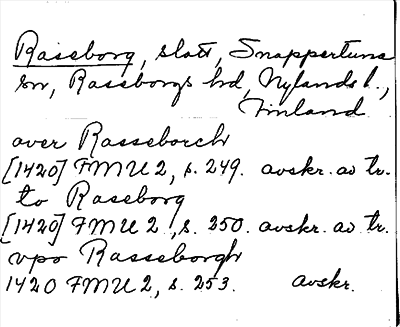 Raseborg, slott, Snappertuna
sn, Raseborgs hd, Nylands l.,
Finland
over Rasseborch
[1420] FMU 2, s. 249. avskr. av tr.
to Raseborg
[1420] FMU 2, s. 250. avskr. av tr.
vpo Rasseborgh
1420 FMU 2, s. 253. avskr.